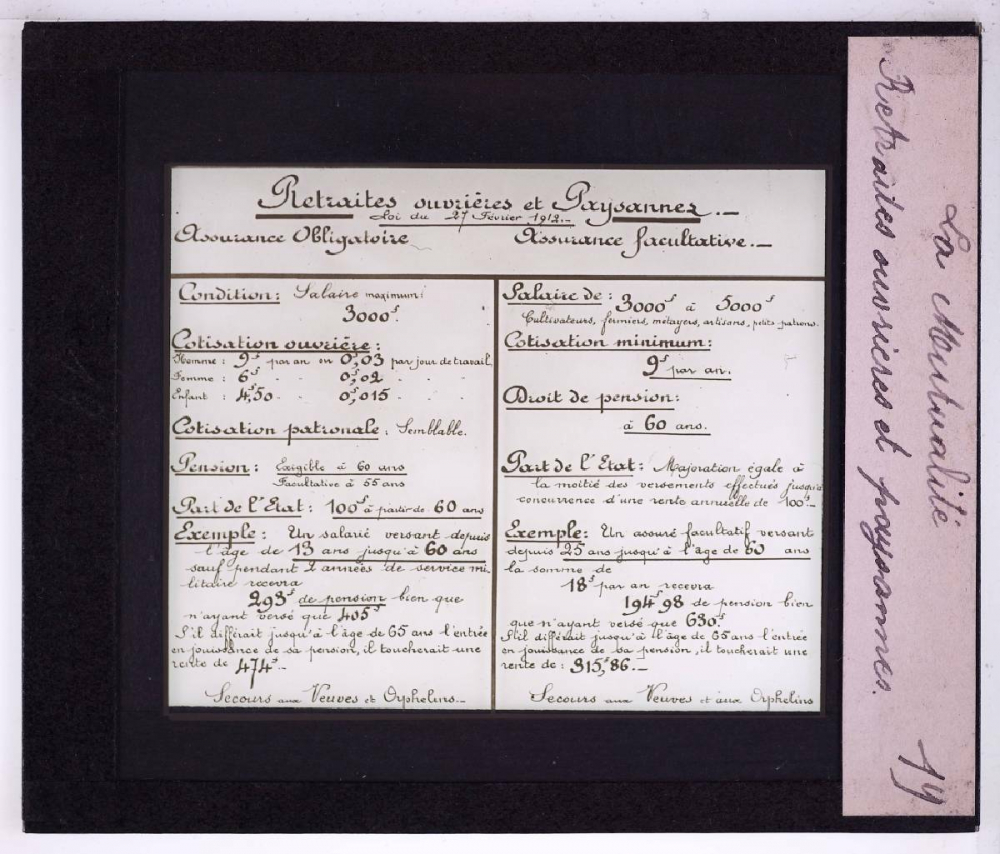 Retraites ouvrières et Paysannes.-
Loi du 27 Février 1912.-
Assurance Obligatoire
Assurance facultative.-
Condition: Salaire maximum:
3000f.
Cotisation ouvrière:
Homme: 9f par an ou 0f,03 par jour de travail
Femme: 6f " 0f,02 " "
Enfant: 4f50 " 0f,015 " "
Cotisation patronale: Semblable.
Pension: Exigible à 60 ans
Facultative à 55 ans
Part de l'Etat: 100f à partir de 60 ans
Exemple: Un salarié versant depuis
l'âge de 13 ans jusqu'à 60 ans
sauf pendant 2 années de service mi-
litaire recevra
293f de pension bien que
n'ayant versé que 405f
S'il différait jusqu'à l'âge de 65 ans l'entrée
en jouissance de sa pension, il toucherait une
rente de 474f-
Secours aux Veuves et Orphelins.-
Salaire de: 3000f à 5000f
Cultivateurs, fermiers, métayers, artisans, petits patrons.
Cotisation minimum:
9f par an.
Droit de pension:
à 60 ans.
Part de l'Etat: Majoration égale à
la moitié des versements effectués jusqu'à
concurrence d'une rente annuelle de 100f-
Exemple: Un assuré facultatif versant
depuis 25 ans jusqu'à l'âge de 60 ans
la somme de
18f par an recevra
194f98 de pension bien
que n'ayant versé que 630f
S'il différait jusqu'à l'âge de 65 ans l'entrée
en jouissance de sa pension, il toucherait une
rente de: 315f,86.-
Secours aux Veuves et aux Orphelins
La Mutualité
Retraites ouvrières et paysannes.